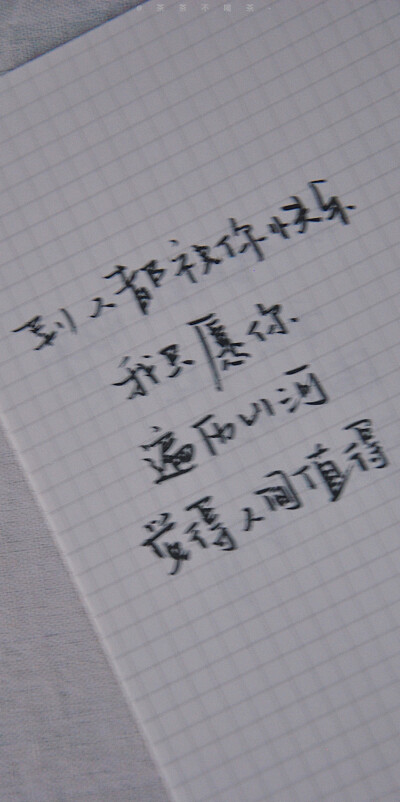 别人都祝你快乐
我只愿你
遍历山河
觉得人间值得